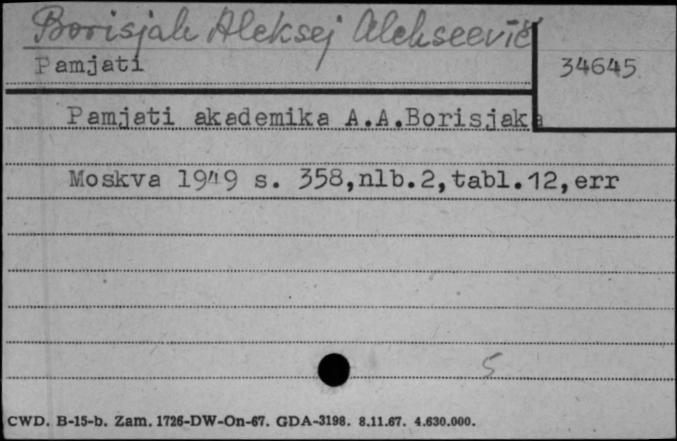 Borisjak Aleksej Alekseevič
Pamjati
34645
Pamjati akademika A.A.Borisjaka
Moskva 1949 s. 358,nlb.2,tabl.12,err
5
CWD. B-15-b. Zam. 1726-DW-On-67. GDA-3198. 8.11.67. 4.630.000.